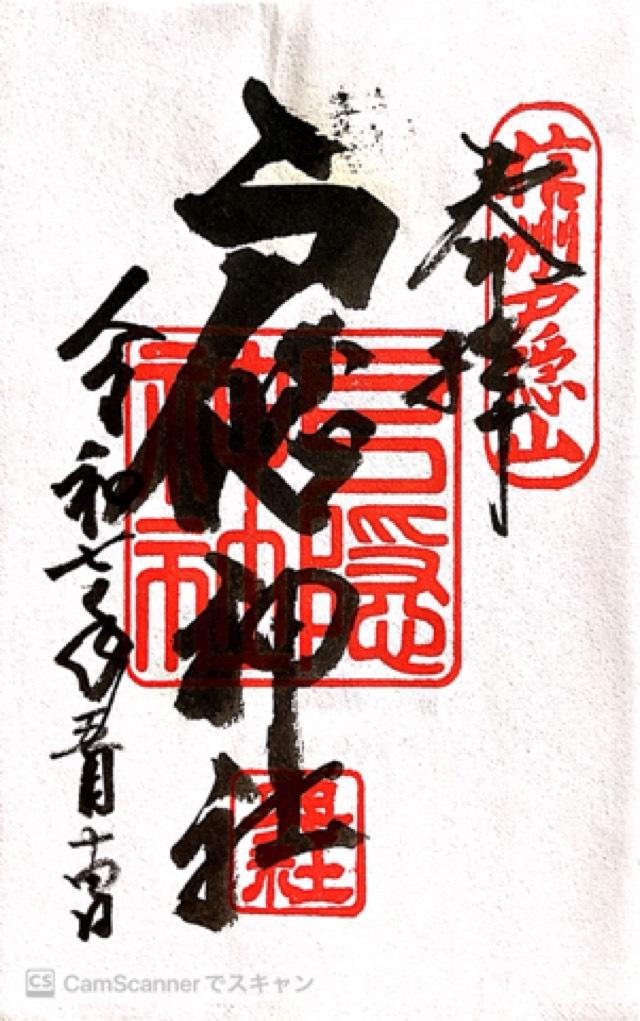 信州戸隠山
奉拝
戸隠神社
戸隠神社
令和七年五月十四日
CamScannerでスキャン